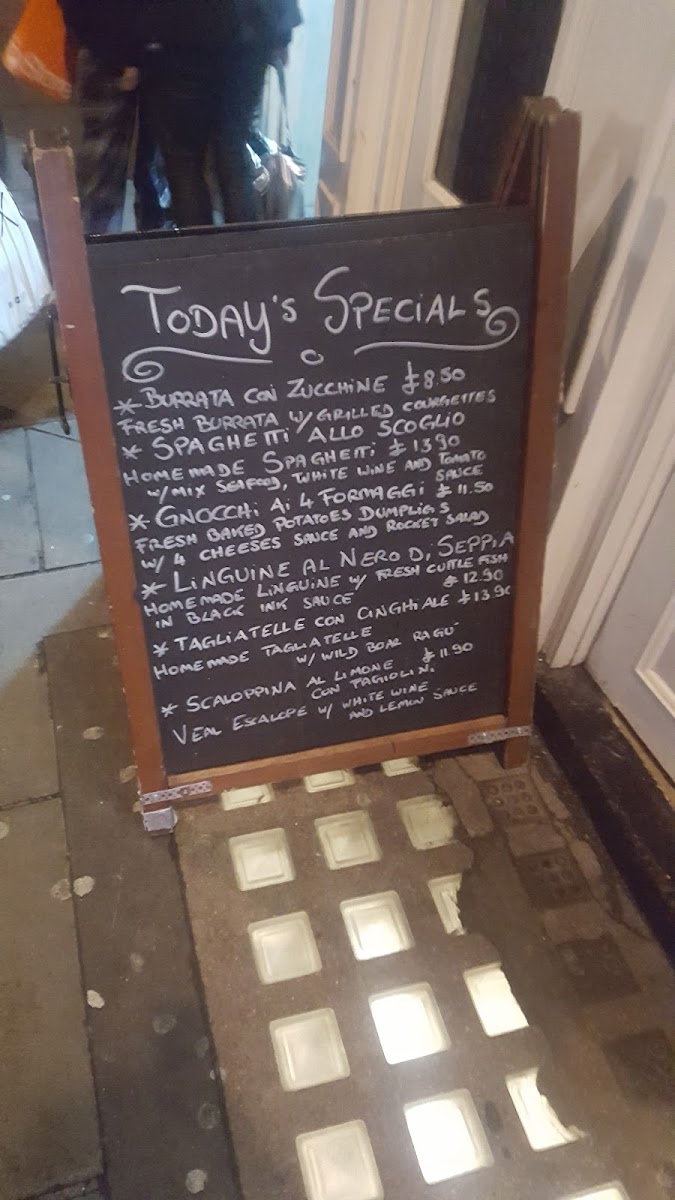 TODAY'S SPECIALS
* BURRATA CON ZUCCHINE £8.50
FRESH BURRATA W/ GRILLED COURGETTES
* SPAGHETTI ALLO SCOGLIO
HOMEMADE SPAGHETTI £13.90
W/ MIX SEAFOOD, WHITE WINE AND TOMATO
SAUCE
* GNOCCHI AI 4 FORMAGGI £11.50
FRESH BAKED POTATOES DUMPLIGS
W/ 4 CHEESES SAUCE AND ROCKET SALAD
* LINGUINE AL NERO DI SEPPIA
HOMEMADE LINGUINE W/ FRESH CUTTLE FISH
IN BLACK INK SAUCE £12.90
* TAGLIATELLE CON CINGHIALE £13.90
HOMEMADE TAGLIATELLE
W/ WILD BOAR RAGU'
* SCALOPPINA AL LIMONE £11.90
CON FAGIOLINI
VEAL ESCALOPE W/ WHITE WINE
AND LEMON SAUCE